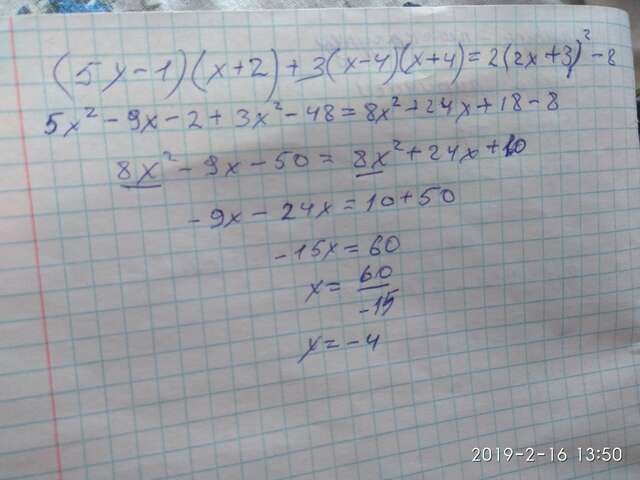 (5x-1)(x+2)+3(x-4)(x+4)=2(2x+3)²-8
5x²-9x-2+3x²-48=8x²+24x+18-8
8x²-9x-50=8x²+24x+10
-9x-24x=10+50
-15x=60
x=60/-15
x=-4
2019-2-16 13:50